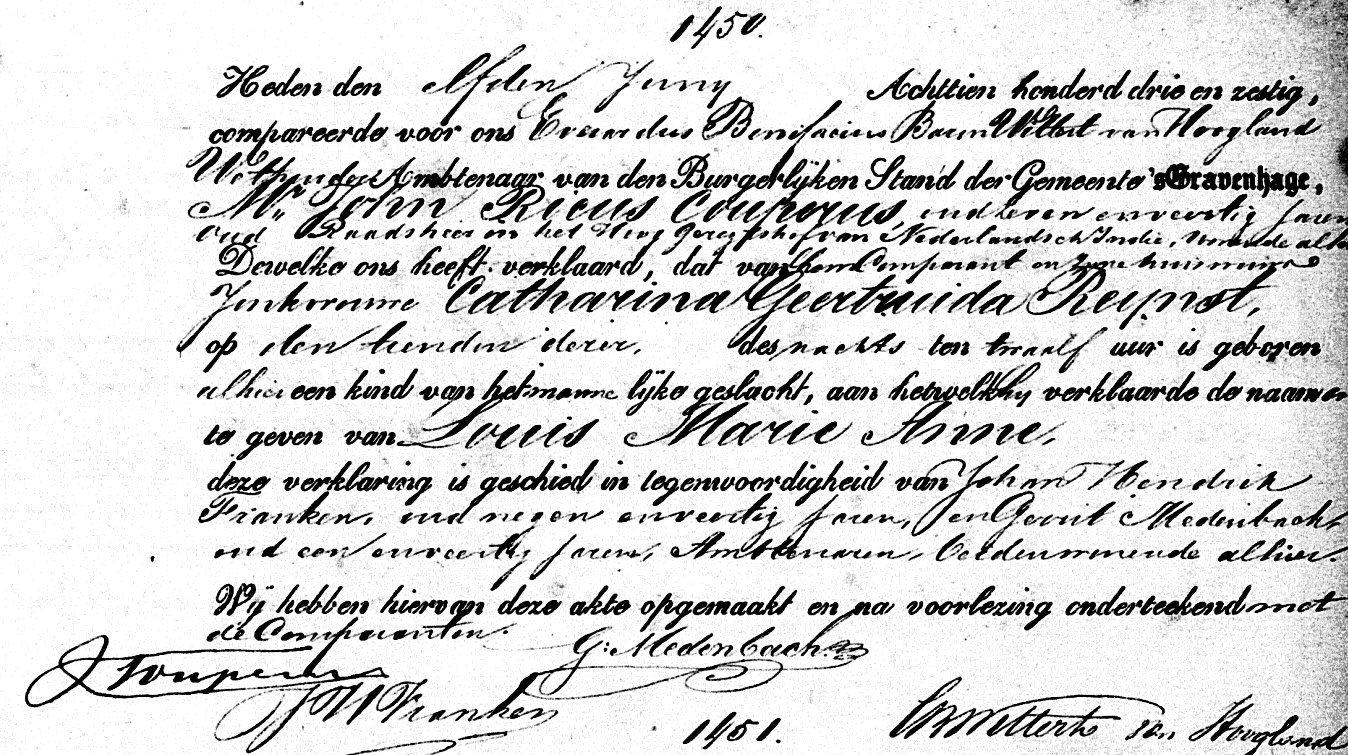 1450.
Heden den elfden Juny Achttien honderd drie en zestig,
compareerde voor ons Evaardus Bonifacius Baron Wittert van Hoogland
Wethouder Ambtenaar van den Burgerlijken Stand der Gemeente 's Gravenhage,
Mr. John Ricus Couperus, oud zeven en veertig jaren
oud Raadsheer in het Hoog Geregtshof van Nederlandsch Indie, wonende alhier
Dewelke ons heeft verklaard, dat van hem Comparant en zyne huisvrouw
Jonkvrouwe Catharina Geertruida Reynst,
op den tienden dezer, des nachts ten twaalf uur is geboren
alhier een kind van het mannelijke geslacht, aan hetwelk hy verklaarde de naamen
te geven van Louis Marie Anne.
deze verklaring is geschied in tegenwoordigheid van Johan Hendrik
Franken, oud negen en veertig jaren, en Gerrit Medenbach,
oud een en veertig jaren, Ambtenaren, beiden wonende alhier.
Wij hebben hiervan deze akte opgemaakt en na voorlezing onderteekend met
de Comparanten.
G. Medenbach
J Couperus
J H Franken
1451. Wittert van Hoogland